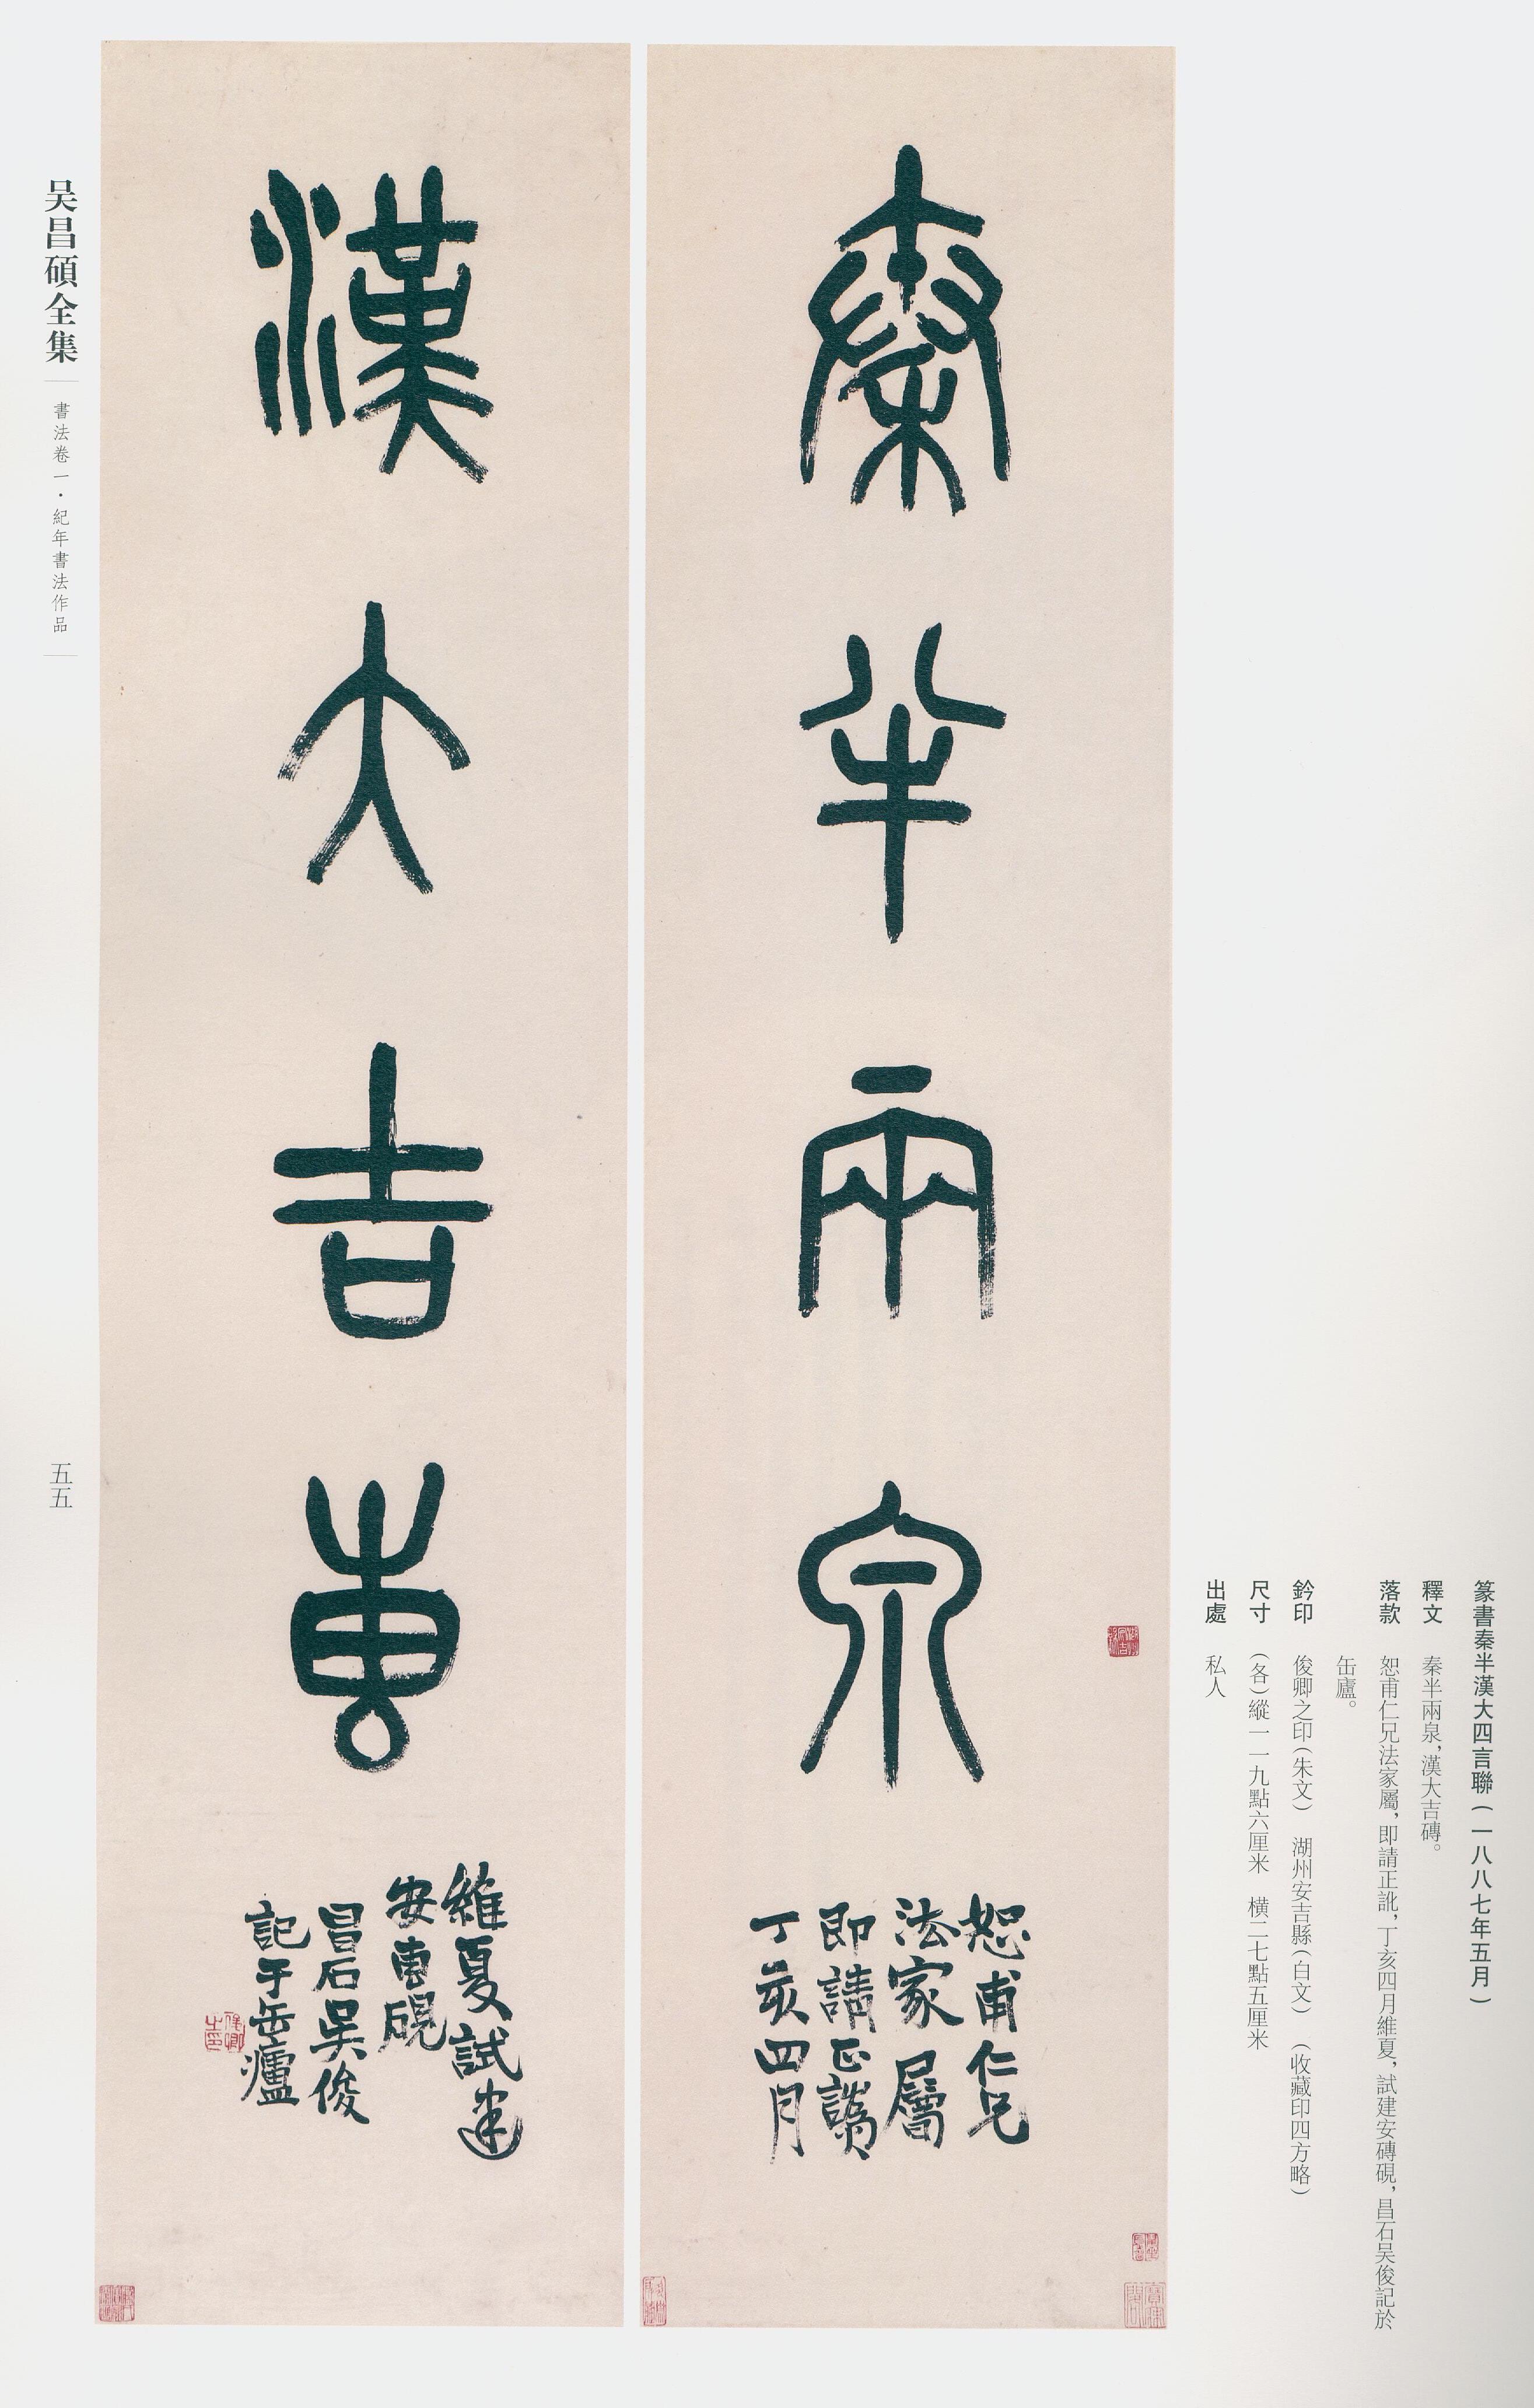 篆書秦半漢大四言聯（一八八七年五月）
釋文 秦半兩泉，漢大吉磚。
落款 恕甫仁兄法家屬，即請正訛，丁亥四月維夏，試建安磚硯，昌石吴俊記於
缶廬。
鈐印 俊卿之印（朱文） 湖州安吉縣（白文） （收藏印四方略）
尺寸 （各）縱一一九點六厘米 横二七點五厘米
出處 私人
秦半兩泉
湖州安吉縣
恕甫仁兄
法家屬
即請正譌
丁亥四月
漢大吉專
維夏試建
安專硯
昌石吳俊
記于缶廬
俊卿之印
吴昌碩全集
書法卷一·紀年書法作品
五五